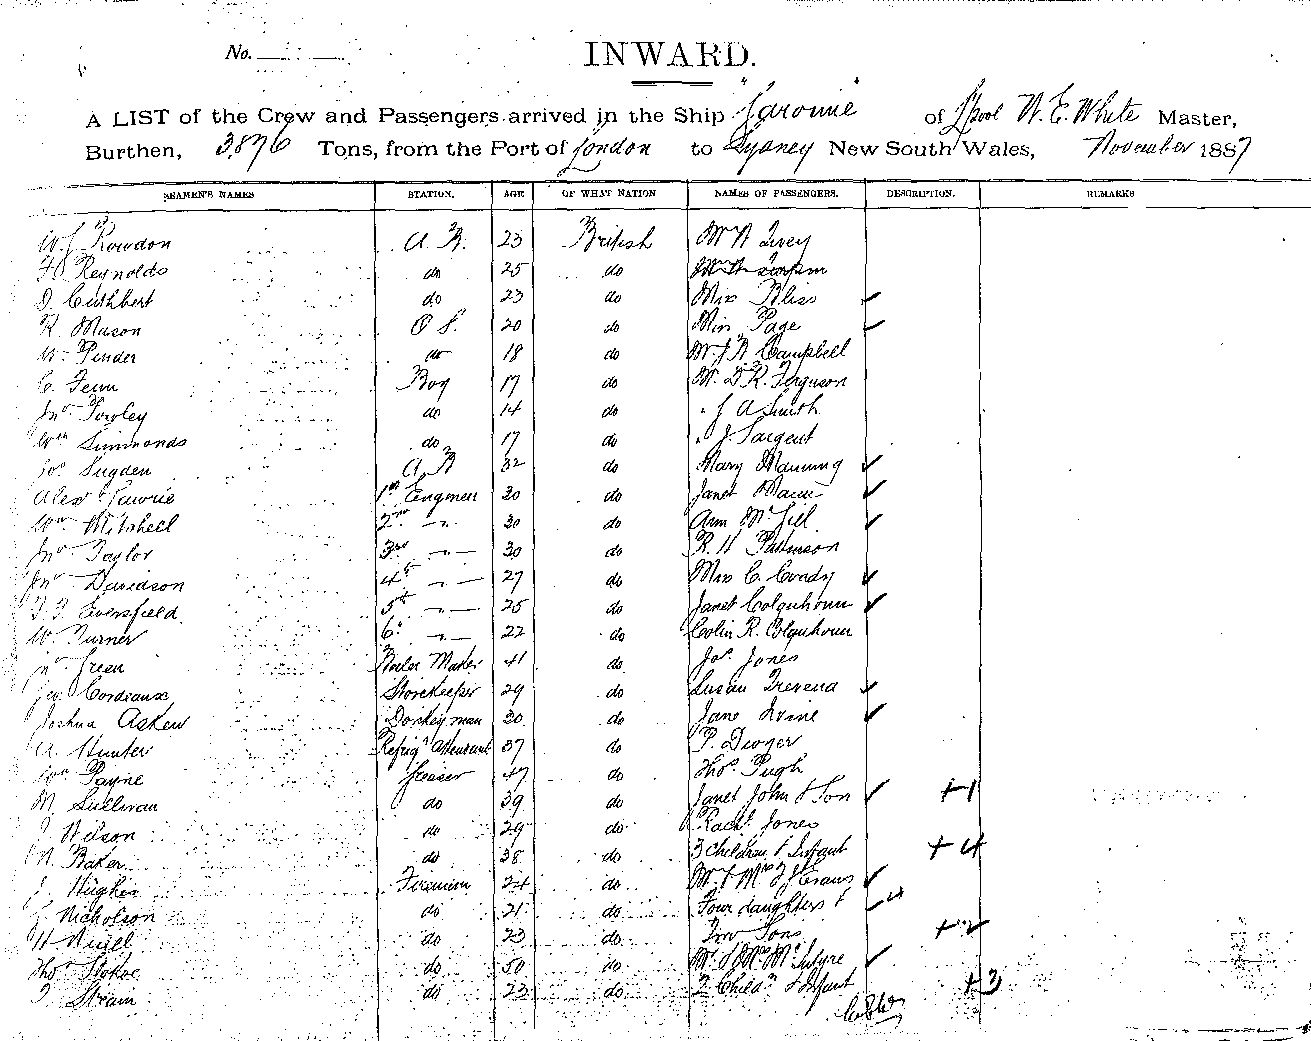 No.
INWARD.
A LIST of the Crew and Passengers arrived in the Ship "Garonne of L'pool W. E. White Master,
Burthen, 3,876 Tons, from the Port of London to Sydney New South Wales, November 1887
SEAMEN'S NAMES STATION. AGE OF WHAT NATION NAMES OF PASSENGERS. DESCRIPTION. REMARKS
Rowdon A. B. 23 British Mr
Reynolds do 25 do
Cuthbert do 23 do Miss Bliss ✓
R. Mason O S. 20 do Miss Page ✓
W. Pinder do 18 do Campbell
C. Fenn Boy 17 do Mr. D. R. Ferguson
Jno. Towley do 14 do " J A Smith
Wm Simmonds do 17 do " J. Sargent
Jos. Sugden A B 32 do Mary Manning ✓
Alexr Lawrie 1st Engineer 30 do Janet ✓
Wm Mitchell 2nd -"- 30 do Ann McGill ✓
Jno Taylor 3rd -"- 30 do R. H. Patterson
Jno Davidson 4th -"- 27 do Miss C. Coady ✓
Eversfield 5th -"- 25 do Janet Colquhoun ✓
W. Turner 6th -"- 22 do Colin R. Colquhoun
Jno Green Boiler Maker 41 do Jos. Jones
Cordeaux Storekeeper 29 do Susan Trevena ✓
Joshua Askew Donkeyman 30 do Jane Irvine ✓
A. Hunter Refrigr Attendant 37 do P. Dwyer
Wm Payne Greaser 47 do Thos. Pugh
M Sullivan do 39 do Janet John & Son ✓ +1
J Wilson do 29 do Rachl Jones
Baker do 38 do 3 Children & Infant +4
Hughes Fireman 24 do Mr & Mrs Evans ✓
Nicholson do 21 do Four daughters & ✓
do 23 do Two Sons
Thos Stokoe do 50 do Mr & Mrs McIntyre ✓
Strain do 23 do 2 Childn & Infant +3